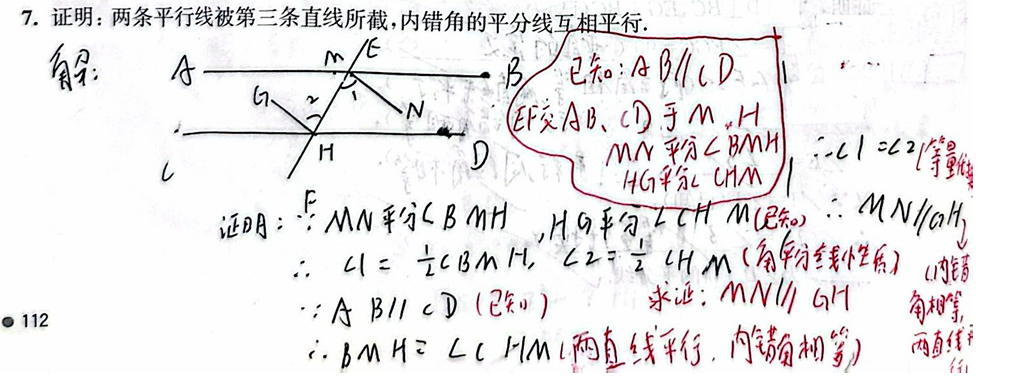 7. 证明：两条平行线被第三条直线所截，内错角的平分线互相平行.
解：
A M E B
G 2 1 N
C H D
F
已知：AB∥CD
EF交AB、CD于M、H
MN平分∠BMH
HG平分∠CHM
证明：∵MN平分∠BMH，HG平分∠CHM（已知）
∴∠1=½∠BMH，∠2=½∠CHM（角平分线性质）
∵AB∥CD（已知）
求证：MN∥GH
∴BMH=∠CHM（两直线平行，内错角相等）
∴∠1=∠2（等量代换
∴MN∥GH
（内错
角相等，
两直线平
行）
112